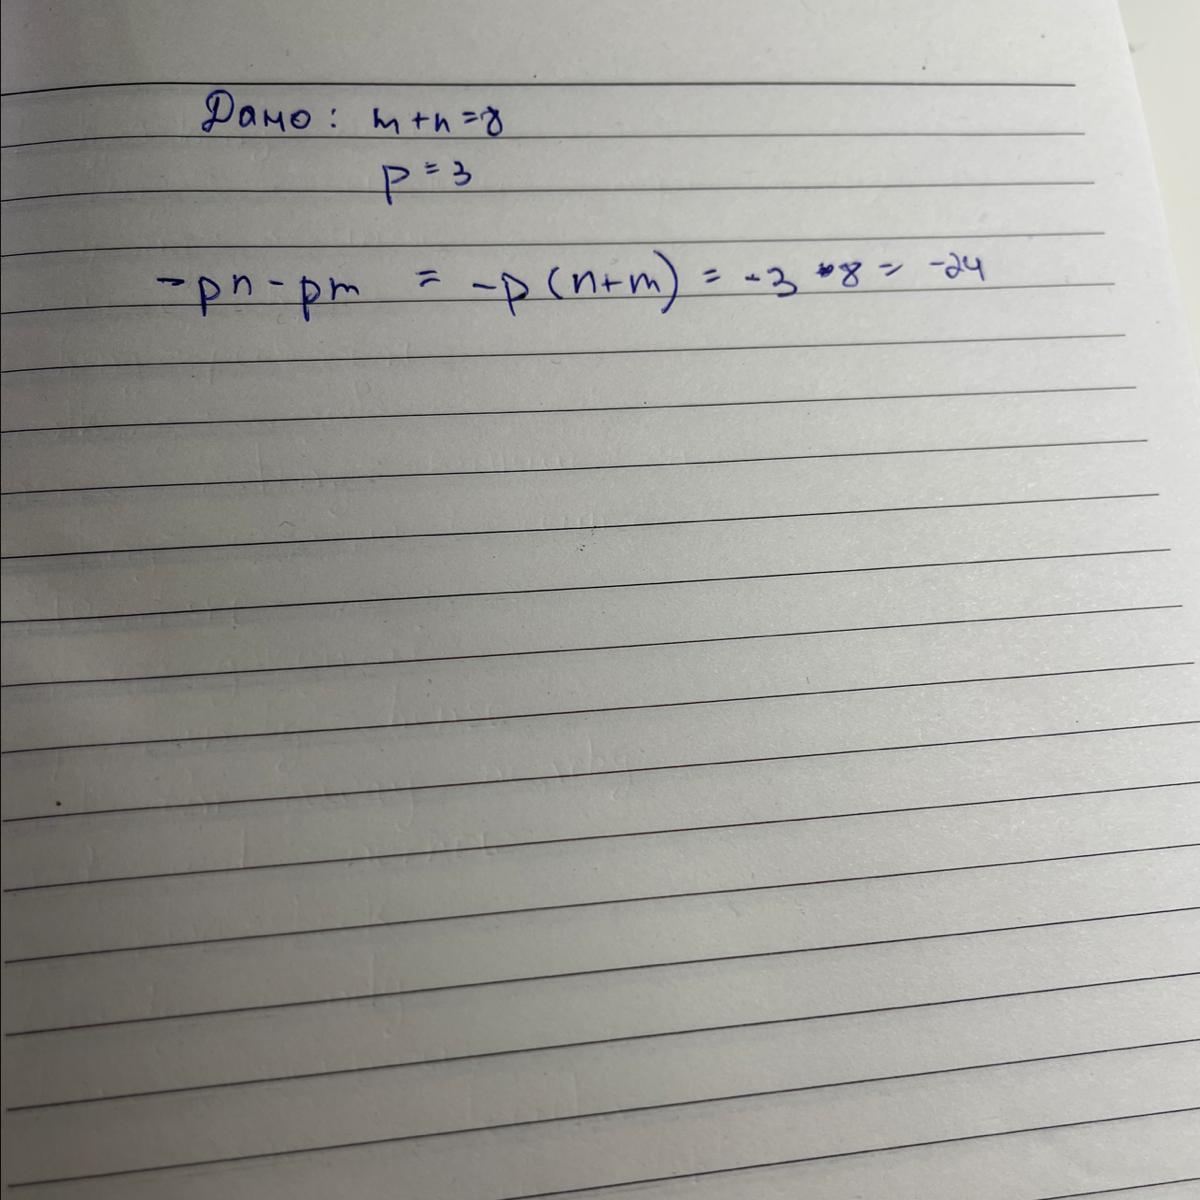 Дано: m+n=8
p=3
-pn-pm = -p(n+m) = -3•8 = -24